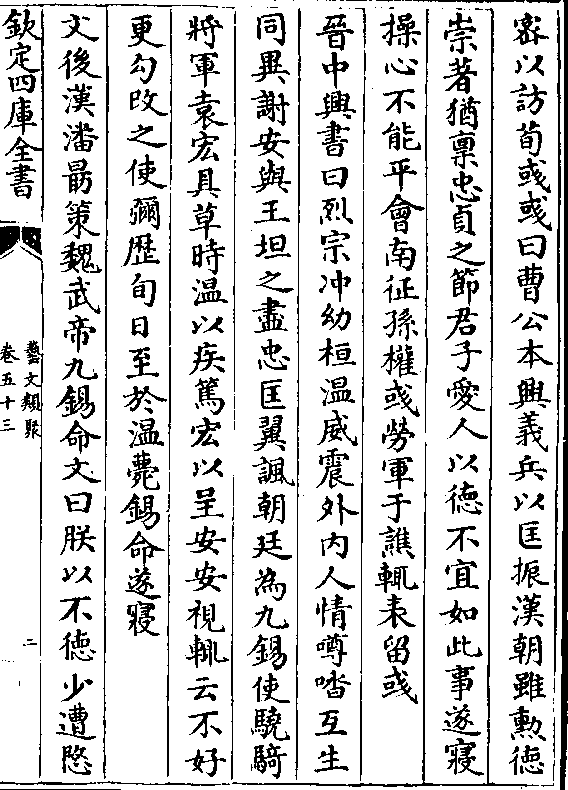 密以訪荀彧彧曰曹公本興義兵以匡振漢朝雖勲徳
崇著猶禀忠貞之節君子愛人以徳不宜如此事遂寢
操心不能平會南征孫權彧勞軍于譙輒表留彧
晉中興書曰烈宗冲幼桓温威震外内人情噂㳫互生
同異謝安與王坦之盡忠匡翼諷朝廷為九錫使驍騎
將軍袁宏具草時温以疾篤宏以呈安安視輒云不好
更勾改之使彌歴旬日至於温薨錫命遂寢
文後漢潘勗策魏武帝九錫命文曰朕以不徳少遭愍
欽定四庫全書
藝文類聚
卷五十三
二